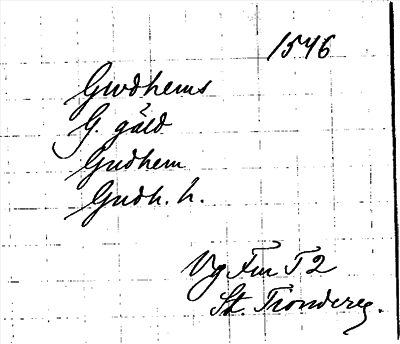 1546
Gwdhems
G. gäld
Gudhem
Gudh. h.
Vg Fm T 2
St. Tiondereg.